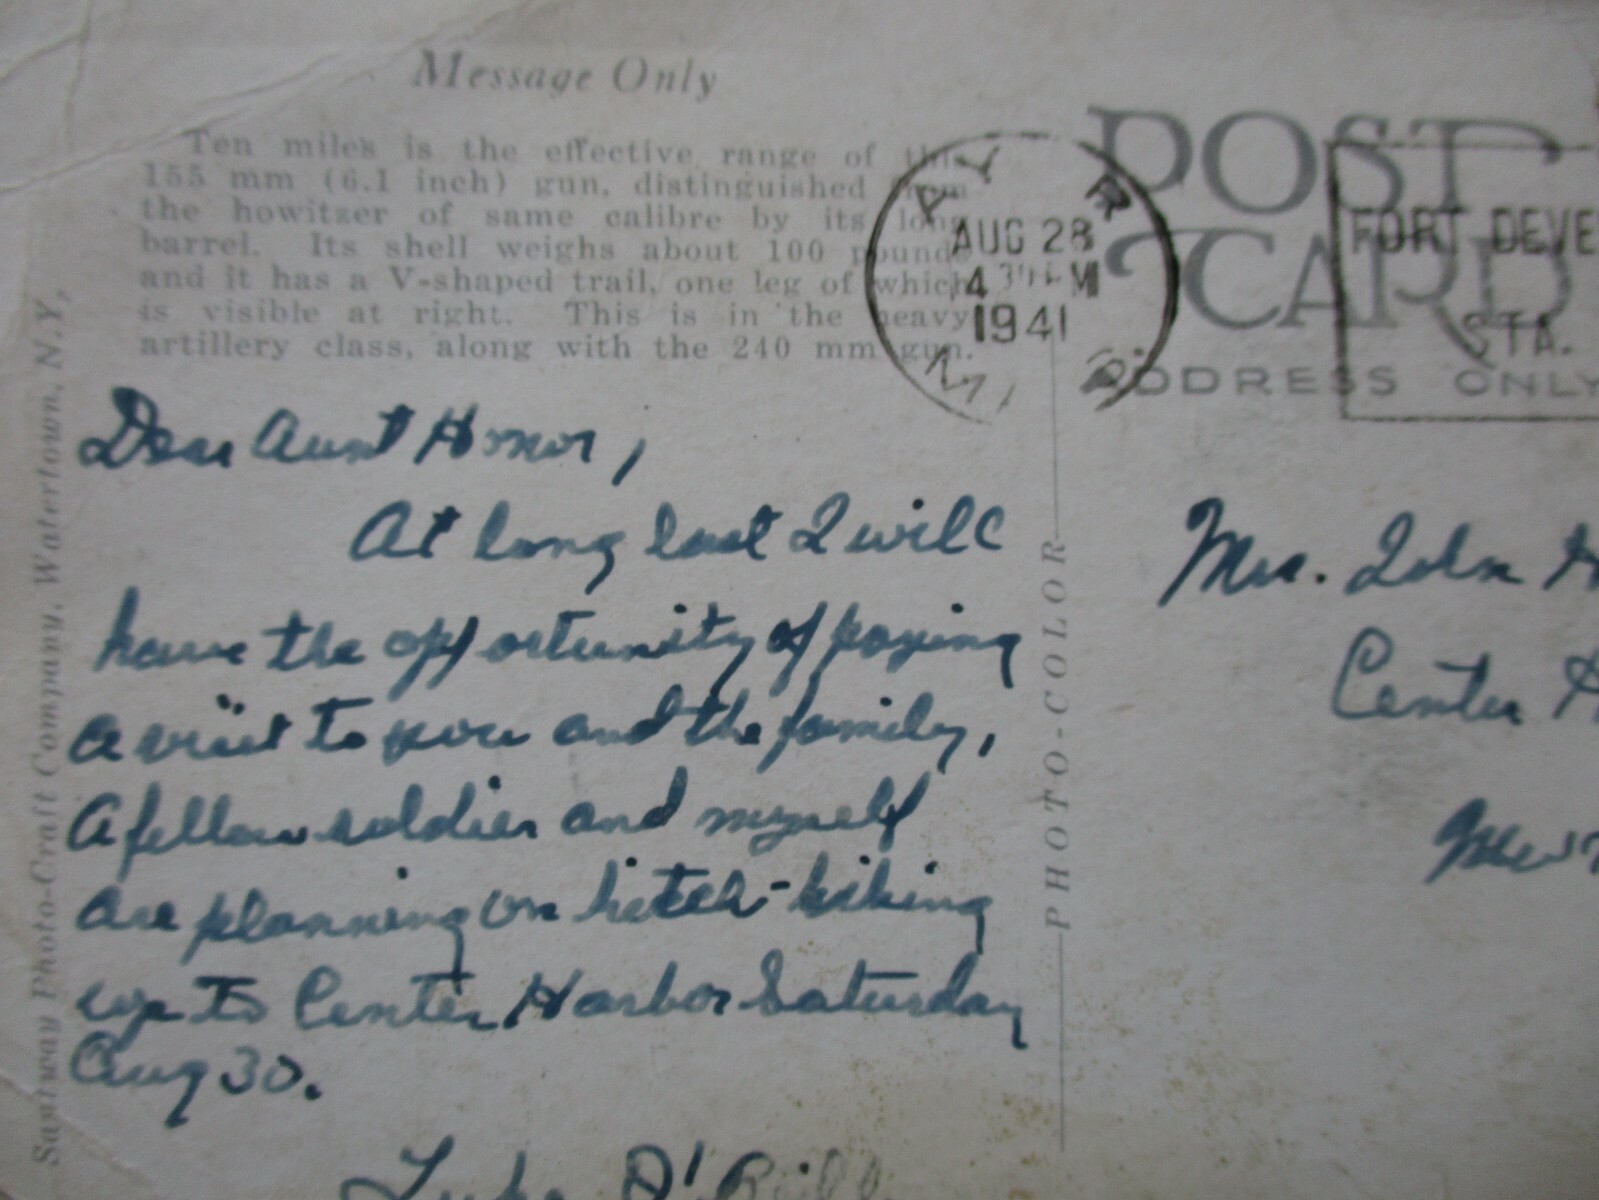 Message Only
Ten miles is the effective range of this
155 mm (6.1 inch) gun, distinguished from
the howitzer of same calibre by its long
barrel. Its shell weighs about 100 pounds
and it has a V-shaped trail, one leg of which
is visible at right. This is in the heavy
artillery class, along with the 240 mm gun.
Dear Aunt Honor,
At long last I will
have the opportunity of paying
a visit to you and the family,
A fellow soldier and myself
are planning on hitch-hiking
up to Center Harbor Saturday
Aug 30.
Luke
Santway Photo-Craft Company, Watertown, N.Y.
PHOTO-COLOR
POST
CARD
ADDRESS ONLY
AYER
AUG 28
4 PM
1941
FORT DEVE
STA.
Mrs. John H
Center H
New